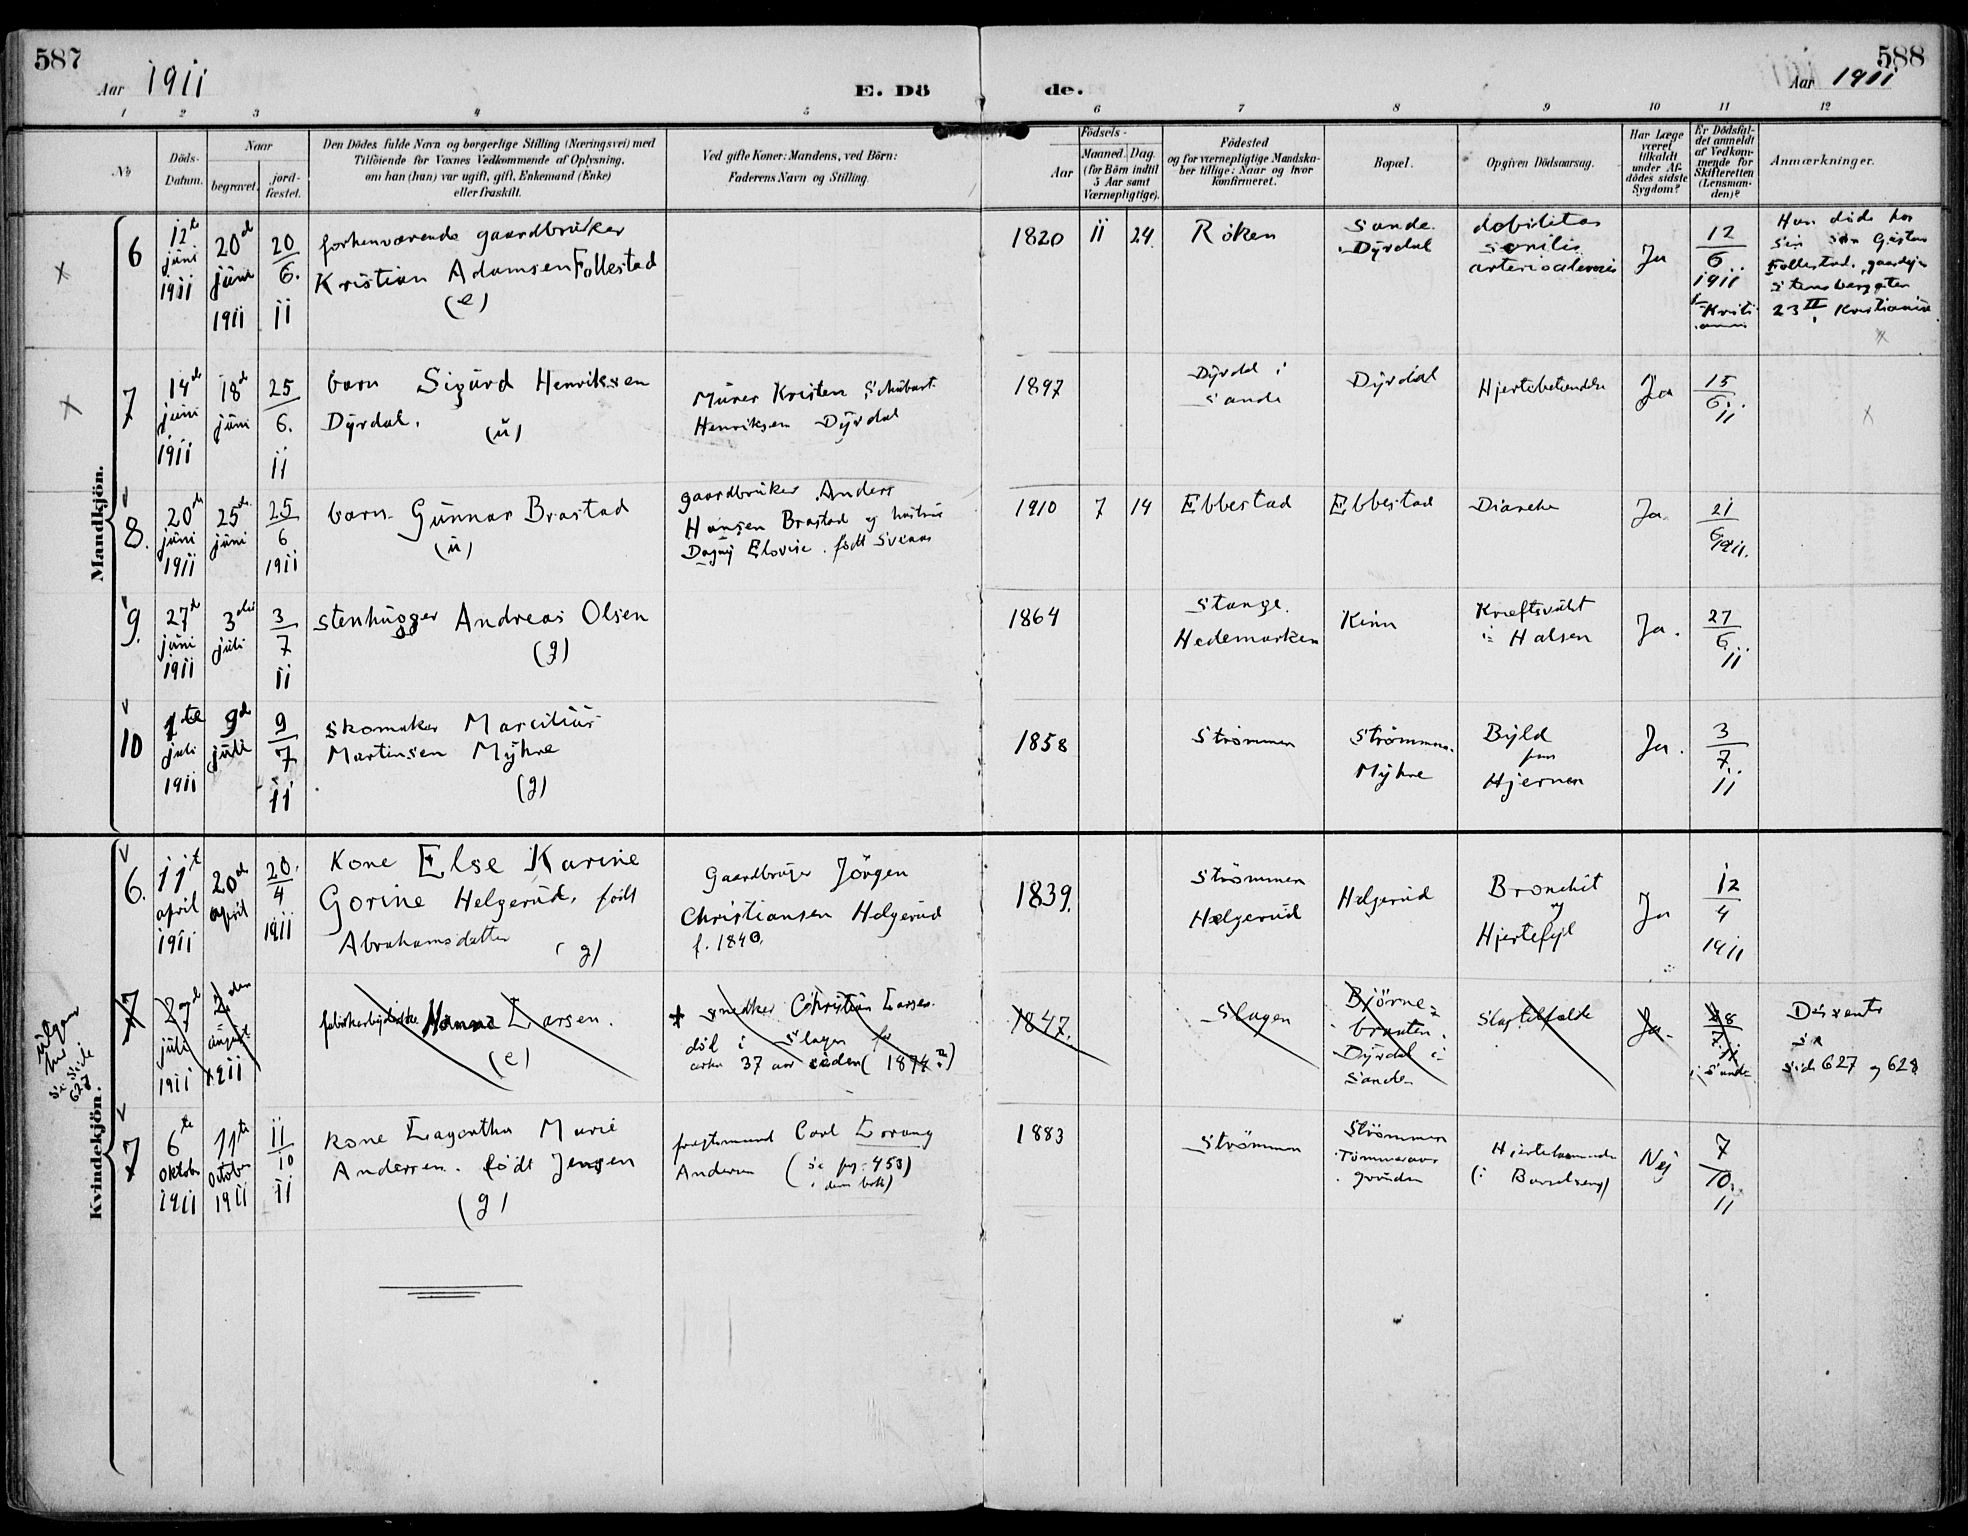 587
Aar 1911
E. Dö
de.
588
Aar 1911
1 2 3 4 5 6 7 8 9 10 11 12
No
Döds-
Datum.
Naar
begravet.
jord-
fæstet.
Den Dödes fulde Navn og borgerlige Stilling (Næringsvei) med
Tilföiende for Voxnes Vedkommende af Oplysning,
om han (hun) var ugift, gift, Enkemand (Enke)
eller fraskilt.
Ved gifte Koner: Mandens, ved Börn:
Faderens Navn og Stilling.
Födsels-
Aar
Maaned. Dag.
(for Börn indtil
5 Aar samt
Værnepligtige).
Födested
og for værnepligtige Mandska-
ber tillige: Naar og hvor
konfirmeret.
Bopæl.
Opgiven Dödsaarsag.
Har Læge
været
tilkaldt
under Af-
dödes sidste
Sygdom?
Er Dödsfal-
det anmeldt
af Vedkom-
mende for
Skifteretten
(Lensman-
den)?
Anmærkninger.
Mandkjön.
6
12te
juni
1911
20de
juni
1911
20
6.
11
forhenværende gaardbruker
Kristian Adamsen Follestad
(e)
1820 11 24.
Röken
Sande.
Dyrdal
debilitas
senilis
arteriosclerosis
Ja
12
6
1911
i Kristi-
ania
Han döde hos
sin sön Gustav
Follestad, gaardejer
Stensberggaten
23 II Kristiania
7
14de
juni
1911
18de
juni
25
6.
11
barn Sigurd Henriksen
Dyrdal.
(u)
Murer Kristen Schubart
Henriksen Dyrdal
1897
Dyrdal i
Sande
Dyrdal
Hjertebetændelse
Ja
15
6.
11
8.
20de
juni
1911
25de
juni
25
6
1911
barn Gunnar Brastad
(u)
gaardbruker Anders
Hansen Brastad og hustru
Dagny Elovise. födt Svenaas
1910 7 14
Ebbestad
Ebbestad
Diarehe
Ja
21
6
1911.
9.
27de
juni
1911
3die
juli
3
7
11
Stenhugger Andreas Olsen
(g)
1864
Stange.
Hedemarken
Kinn
Kræftsvulst
i Halsen
Ja.
27
6
11
10
1ste
juli
1911
9de
juli
9
7
11
Skomaker Marcilius
Martinsen Myhre
(g)
1858
Strömmen
Strömmen.
Myhre
Byld
paa
Hjernen
Ja.
3
7.
11
Kvindekjön.
6.
11t
april
1911
20de
april
20.
4
1911
Kone Else Karine
Gorine Helgerud, födt
Abrahamsdatter
(g)
Gaardbruger Jörgen
Christiansen Helgerud
f. 1840.
1839.
Strömmen
Helgerud
Helgerud
Bronchit
og
Hjertefejl
Ja
12
4
1911
Utgaar
Se Side
627
7
juli
1911
2den
august
1911
Hanna Larsen.
(e)
snedker Christian Larsen
död i Slagen for
cirka 37 aar siden (1874?)
1847.
Slagen
Björne-
braaten.
Dyrdal i
Sande
Slagtilfælde
Ja.
28
7.
11
i Sande
Desvente
se
side 627 og 628
7
6te
Oktober
1911
11te
October
1911
11
10
11
Kone Lagertha Marie
Andersen. födt Jensen
(g)
fragtemand Carl Lorang
Andersen (se pag. 453)
i denne bok)
1883
Strömmen
Strömmen
Tömmeraas
grunden
(i Barselseng)
Nej
7
10.
11